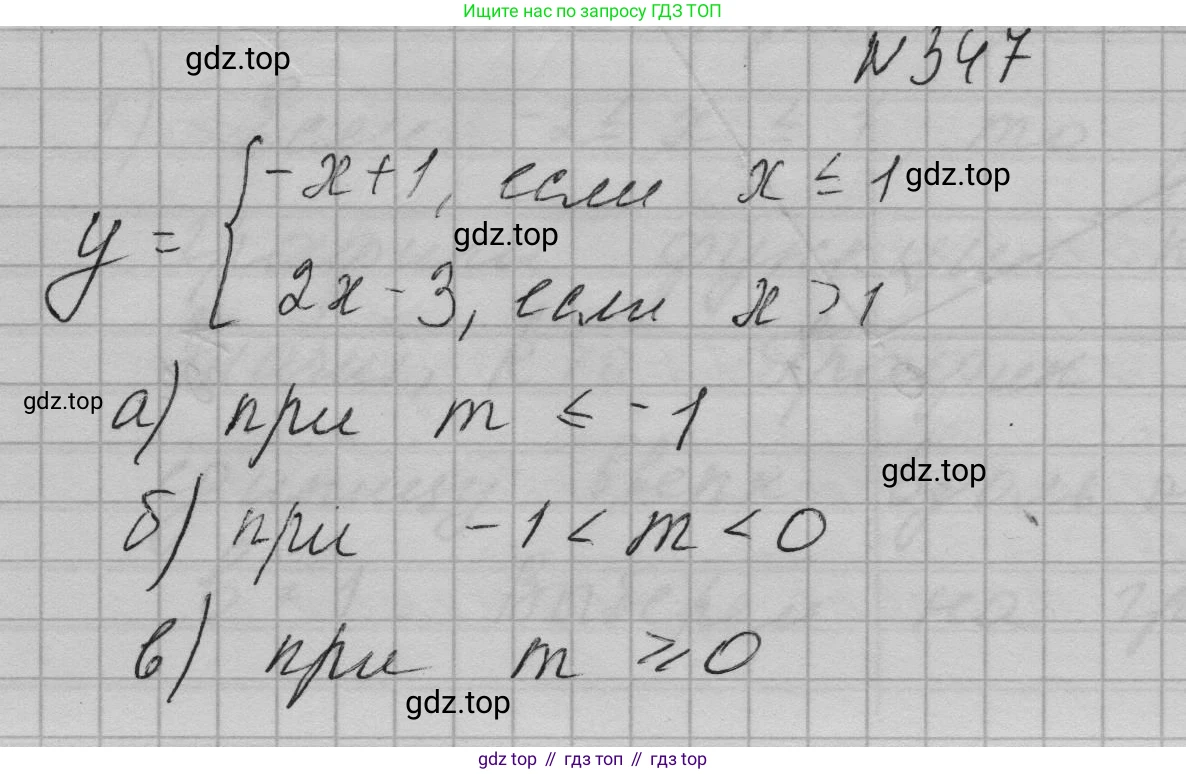 Ищите нас по запросу ГДЗ ТОП
gdz.top
N 347
y = { -x+1, если x ≤ 1
gdz.top
gdz.top
2x - 3, если x > 1
gdz.top
а) при m ≤ -1
gdz.top
б) при -1 < m < 0
в) при m ≥ 0
gdz.top
gdz top // гдз топ // gdz top